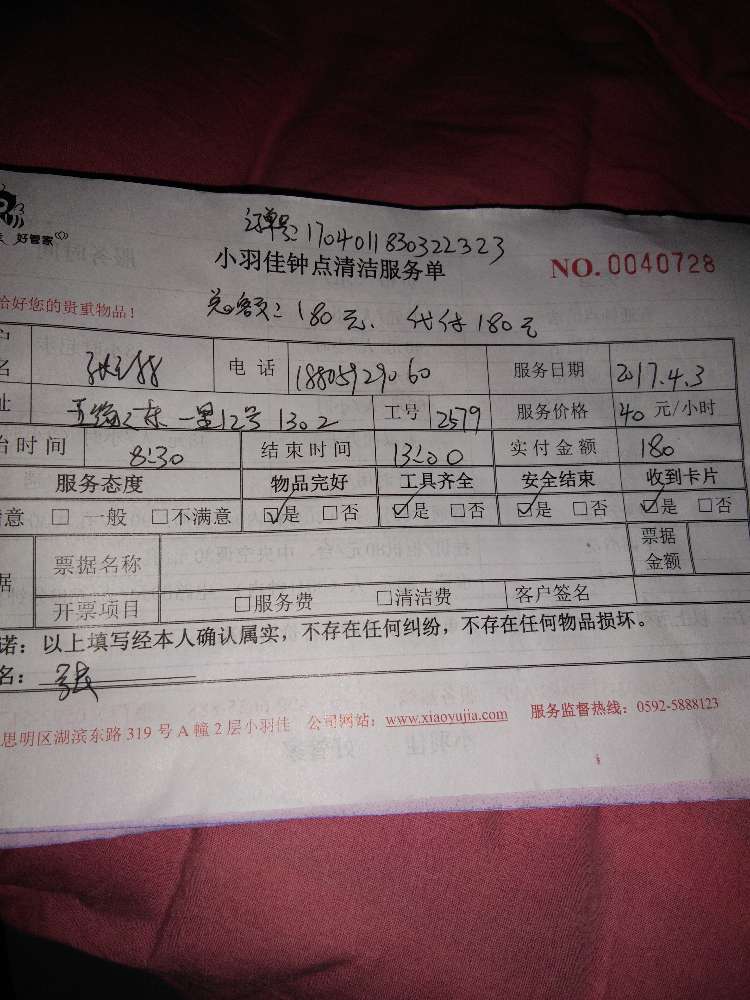 好管家
订单号:1704011830322323
小羽佳钟点清洁服务单
NO. 0040728
恰好您的贵重物品!
总客额:180元. 代付180元
名 电话 18805929060 服务日期 2017.4.3
址 东一里12号1302 工号 2579 服务价格 40元/小时
时间 8:30 结束时间 13:00 实付金额 180
服务态度 物品完好 工具齐全 安全结束 收到卡片
意 □ 一般 □不满意 ☑是 □否 ☑是 □否 ☑是 □否 ☑是 □否
据 票据名称 票据金额
开票项目 □服务费 □清洁费 客户签名
诺:以上填写经本人确认属实,不存在任何纠纷,不存在任何物品损坏。
名:
思明区湖滨东路319号A幢2层小羽佳 公司网站:www.xiaoyujia.com 服务监督热线:0592-5888123